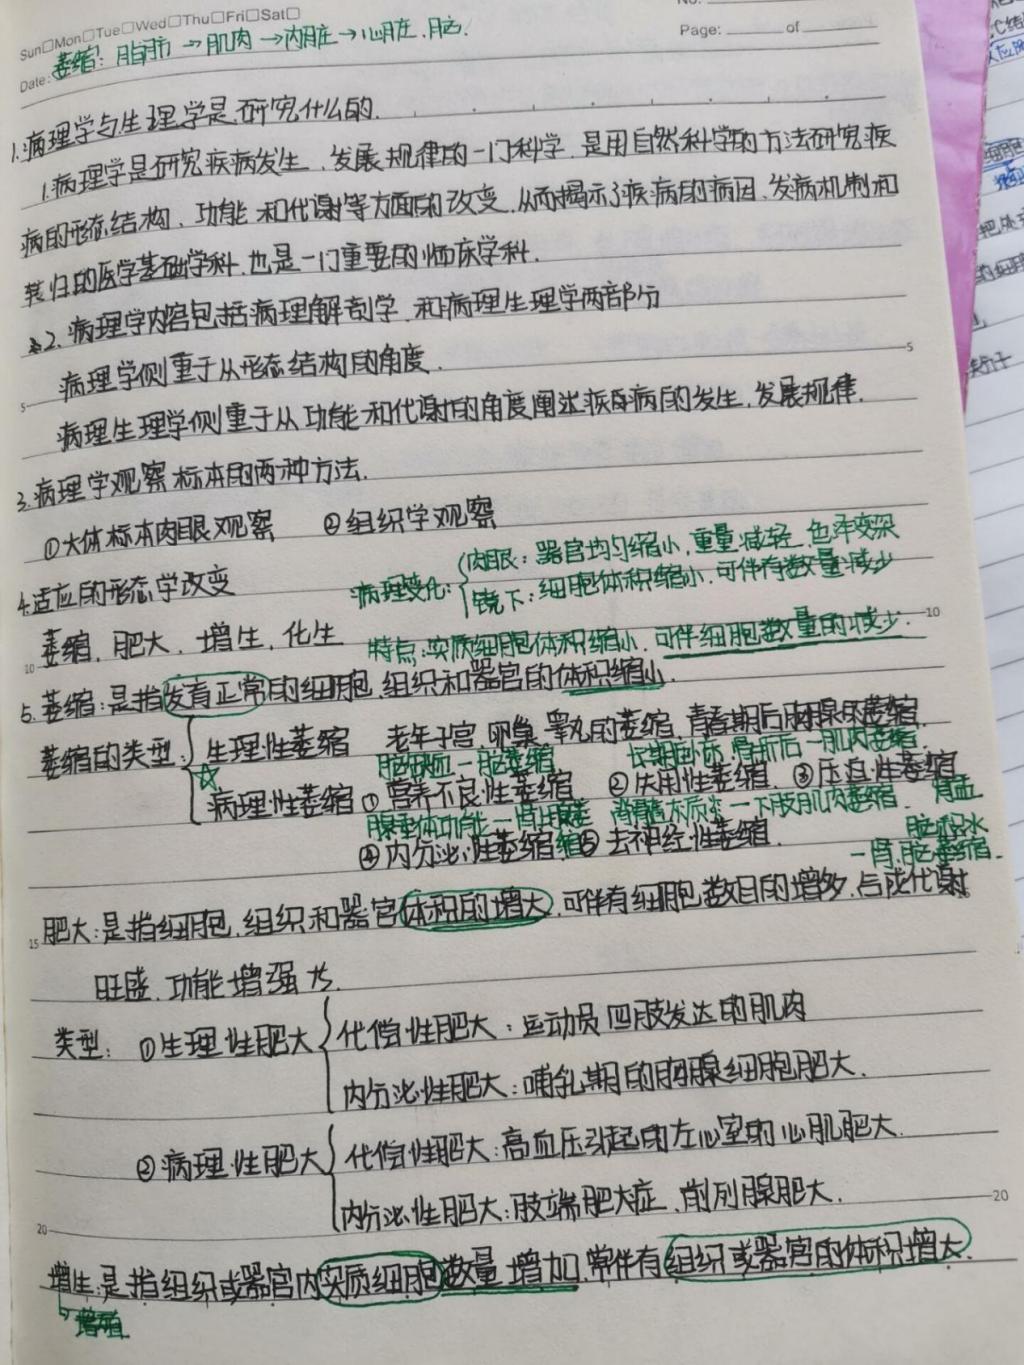 Sun□Mon□Tue□Wed□Thu□Fri□Sat□
No.
Date: 萎缩: 脂肪→肌肉→内脏→心脏.脑.
Page: ____ of ____
1.病理学与生理学是研究什么的.
1.病理学是研究疾病发生、发展规律的一门科学,是用自然科学的方法研究疾
病的形态结构、功能和代谢等方面的改变,从而揭示了疾病的病因、发病机制和
转归的医学基础学科,也是一门重要的临床学科.
2. 病理学内容包括病理解剖学,和病理生理学两部分
5
病理学侧重于从形态结构的角度.
5
病理生理学侧重于从功能和代谢的角度阐述疾病的发生,发展规律.
3.病理学观察标本的两种方法.
①大体标本肉眼观察 ②组织学观察
4.适应的形态学改变
病理变化: 肉眼: 器官均匀缩小,重量减轻,色泽变深
镜下: 细胞体积缩小,可伴有数量减少
10
萎缩、肥大、增生、化生
特点:实质细胞体积缩小,可伴细胞数量的减少.
10
5.萎缩:是指发育正常的细胞,组织和器官的体积缩小.
萎缩的类型: 生理性萎缩 老年子宫 卵巢 睾丸的萎缩,青春期后胸腺的萎缩.
脑缺血—脑萎缩 长期卧床,骨折后—肌肉萎缩.
☆ 病理性萎缩 ①营养不良性萎缩 ②失用性萎缩 ③压迫性萎缩
腺垂体功能— 脊髓灰质炎—下肢肌肉萎缩
④内分泌性萎缩 ⑤去神经性萎缩.
脑积水
—肾.脑萎缩.
15
肥大:是指细胞,组织和器官体积的增大,可伴有细胞数目的增多,合成代谢
旺盛,功能增强
类型: ①生理性肥大 代偿性肥大: 运动员四肢发达的肌肉
内分泌性肥大: 哺乳期的胸腺细胞肥大.
②病理性肥大 代偿性肥大:高血压引起的左心室的心肌肥大.
内分泌性肥大:肢端肥大症,前列腺肥大.
20
20
增生:是指组织或器官内实质细胞数量增加,常伴有组织或器官的体积增大.
增殖